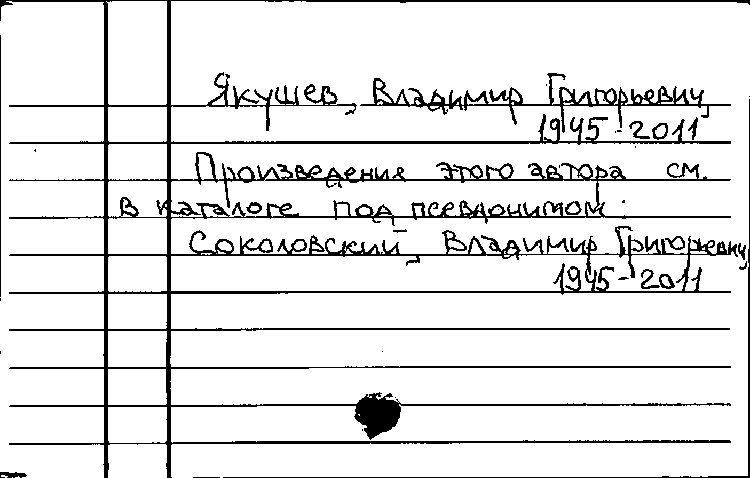 Якушев, Владимир Григорьевич,
1945-2011
Произведения этого автора см.
в каталоге под псевдонимом:
Соколовский, Владимир Григорьевич,
1945-2011